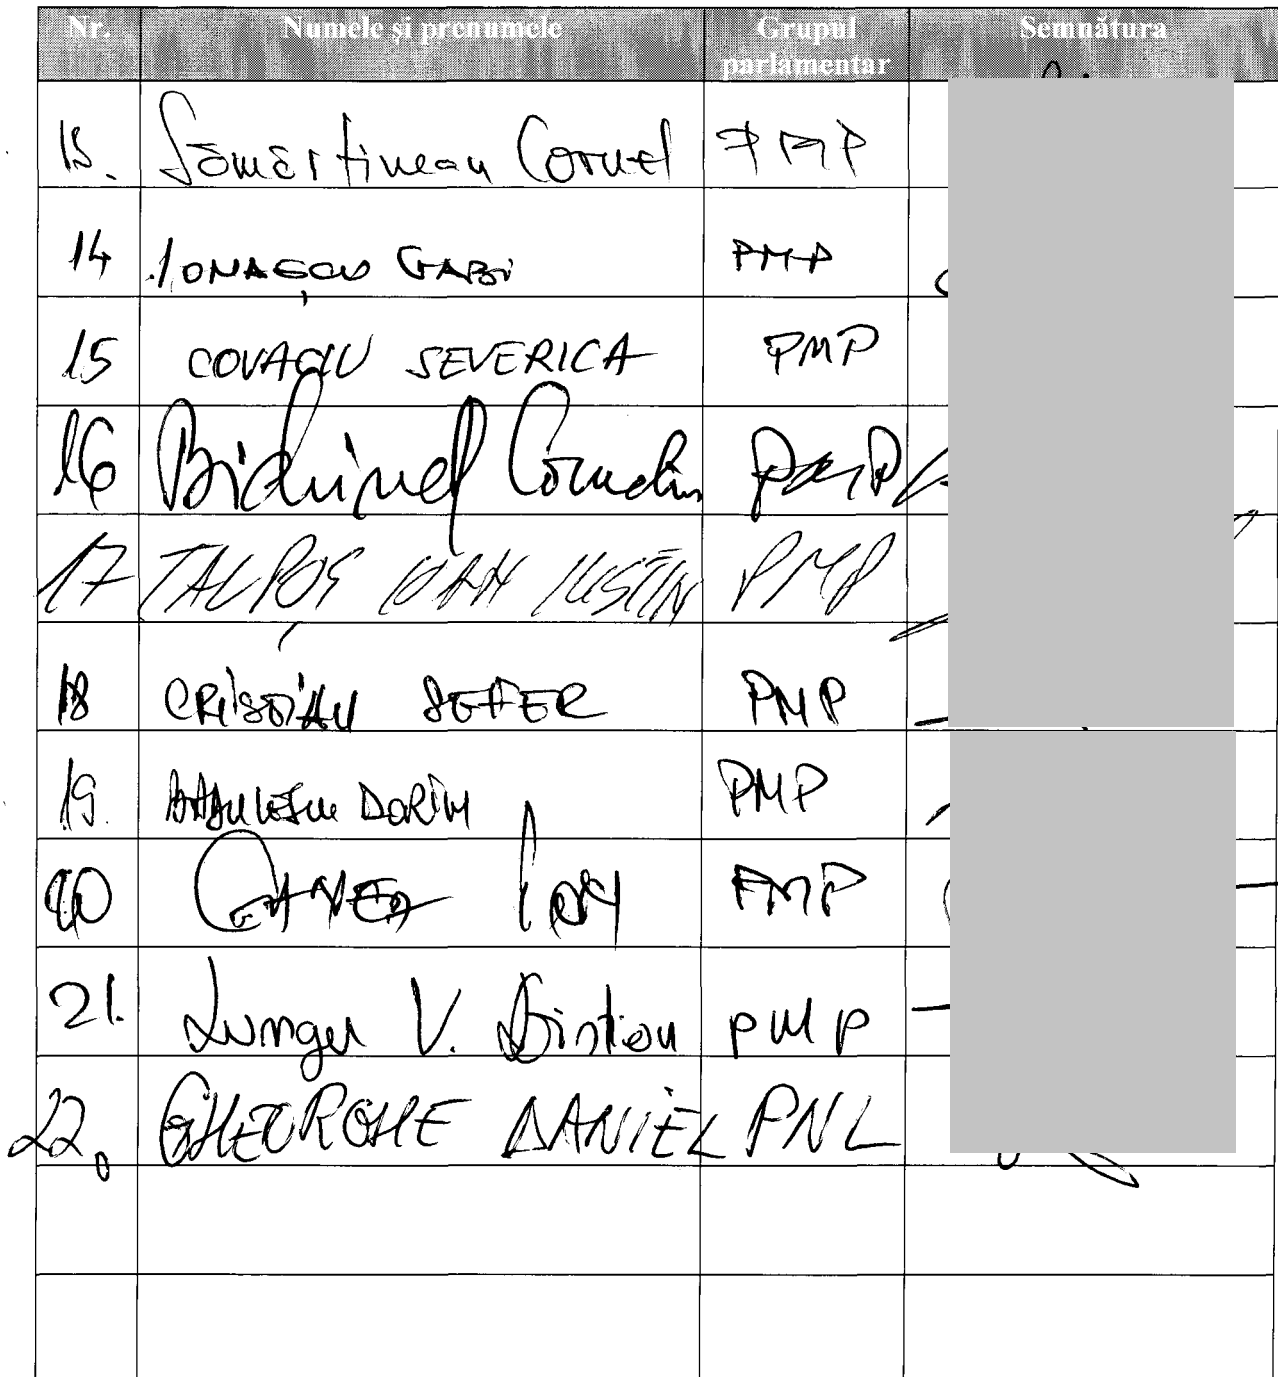 Nr. Numele și prenumele Grupul parlamentar Semnătura
13. Sămărtinean Cornel PMP
14 IONAȘCU GABI PMP
15 COVACIU SEVERICA PMP
16 Bichineț Corneliu PMP
17 TALPOȘ IOAN IUSTIN PMP
18 CRISTIAN SEFER PMP
19. BĂDULESCU DORIN PMP
20 PMP
21. Lungu V. PMP
22. GHEORGHE DANIEL PNL